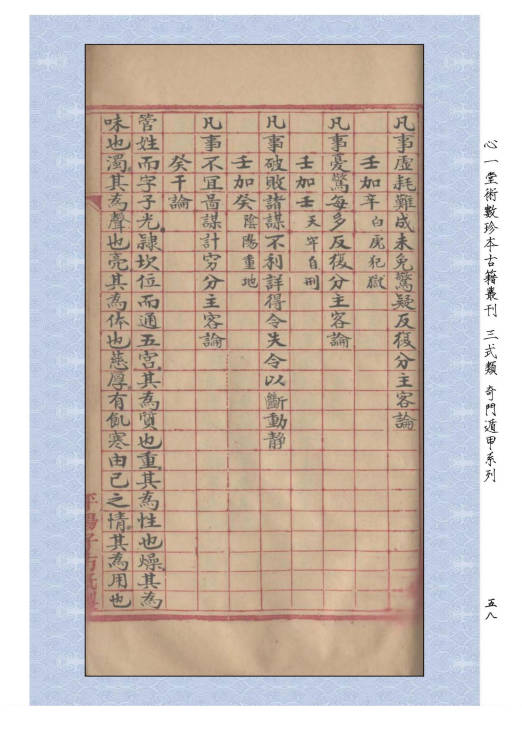 凡事虛耗難成未免驚疑反復分主客論
壬加辛 白虎犯獄
凡事憂驚每多反復分主客論
壬加壬 天牢自刑
凡事破敗諸謀不利詳得令失令以斷動靜
壬加癸 陰陽重地
凡事不宜啚謀計窮分主客論
癸干論
管姓而字子光隸坎位而通五宮其為質也重其為性也燥其為
味也濁其為聲也亮其為体也慈厚有飢寒由己之情其為用也
心一堂術數珍本古籍叢刊 三式類 奇門遁甲系列
五八